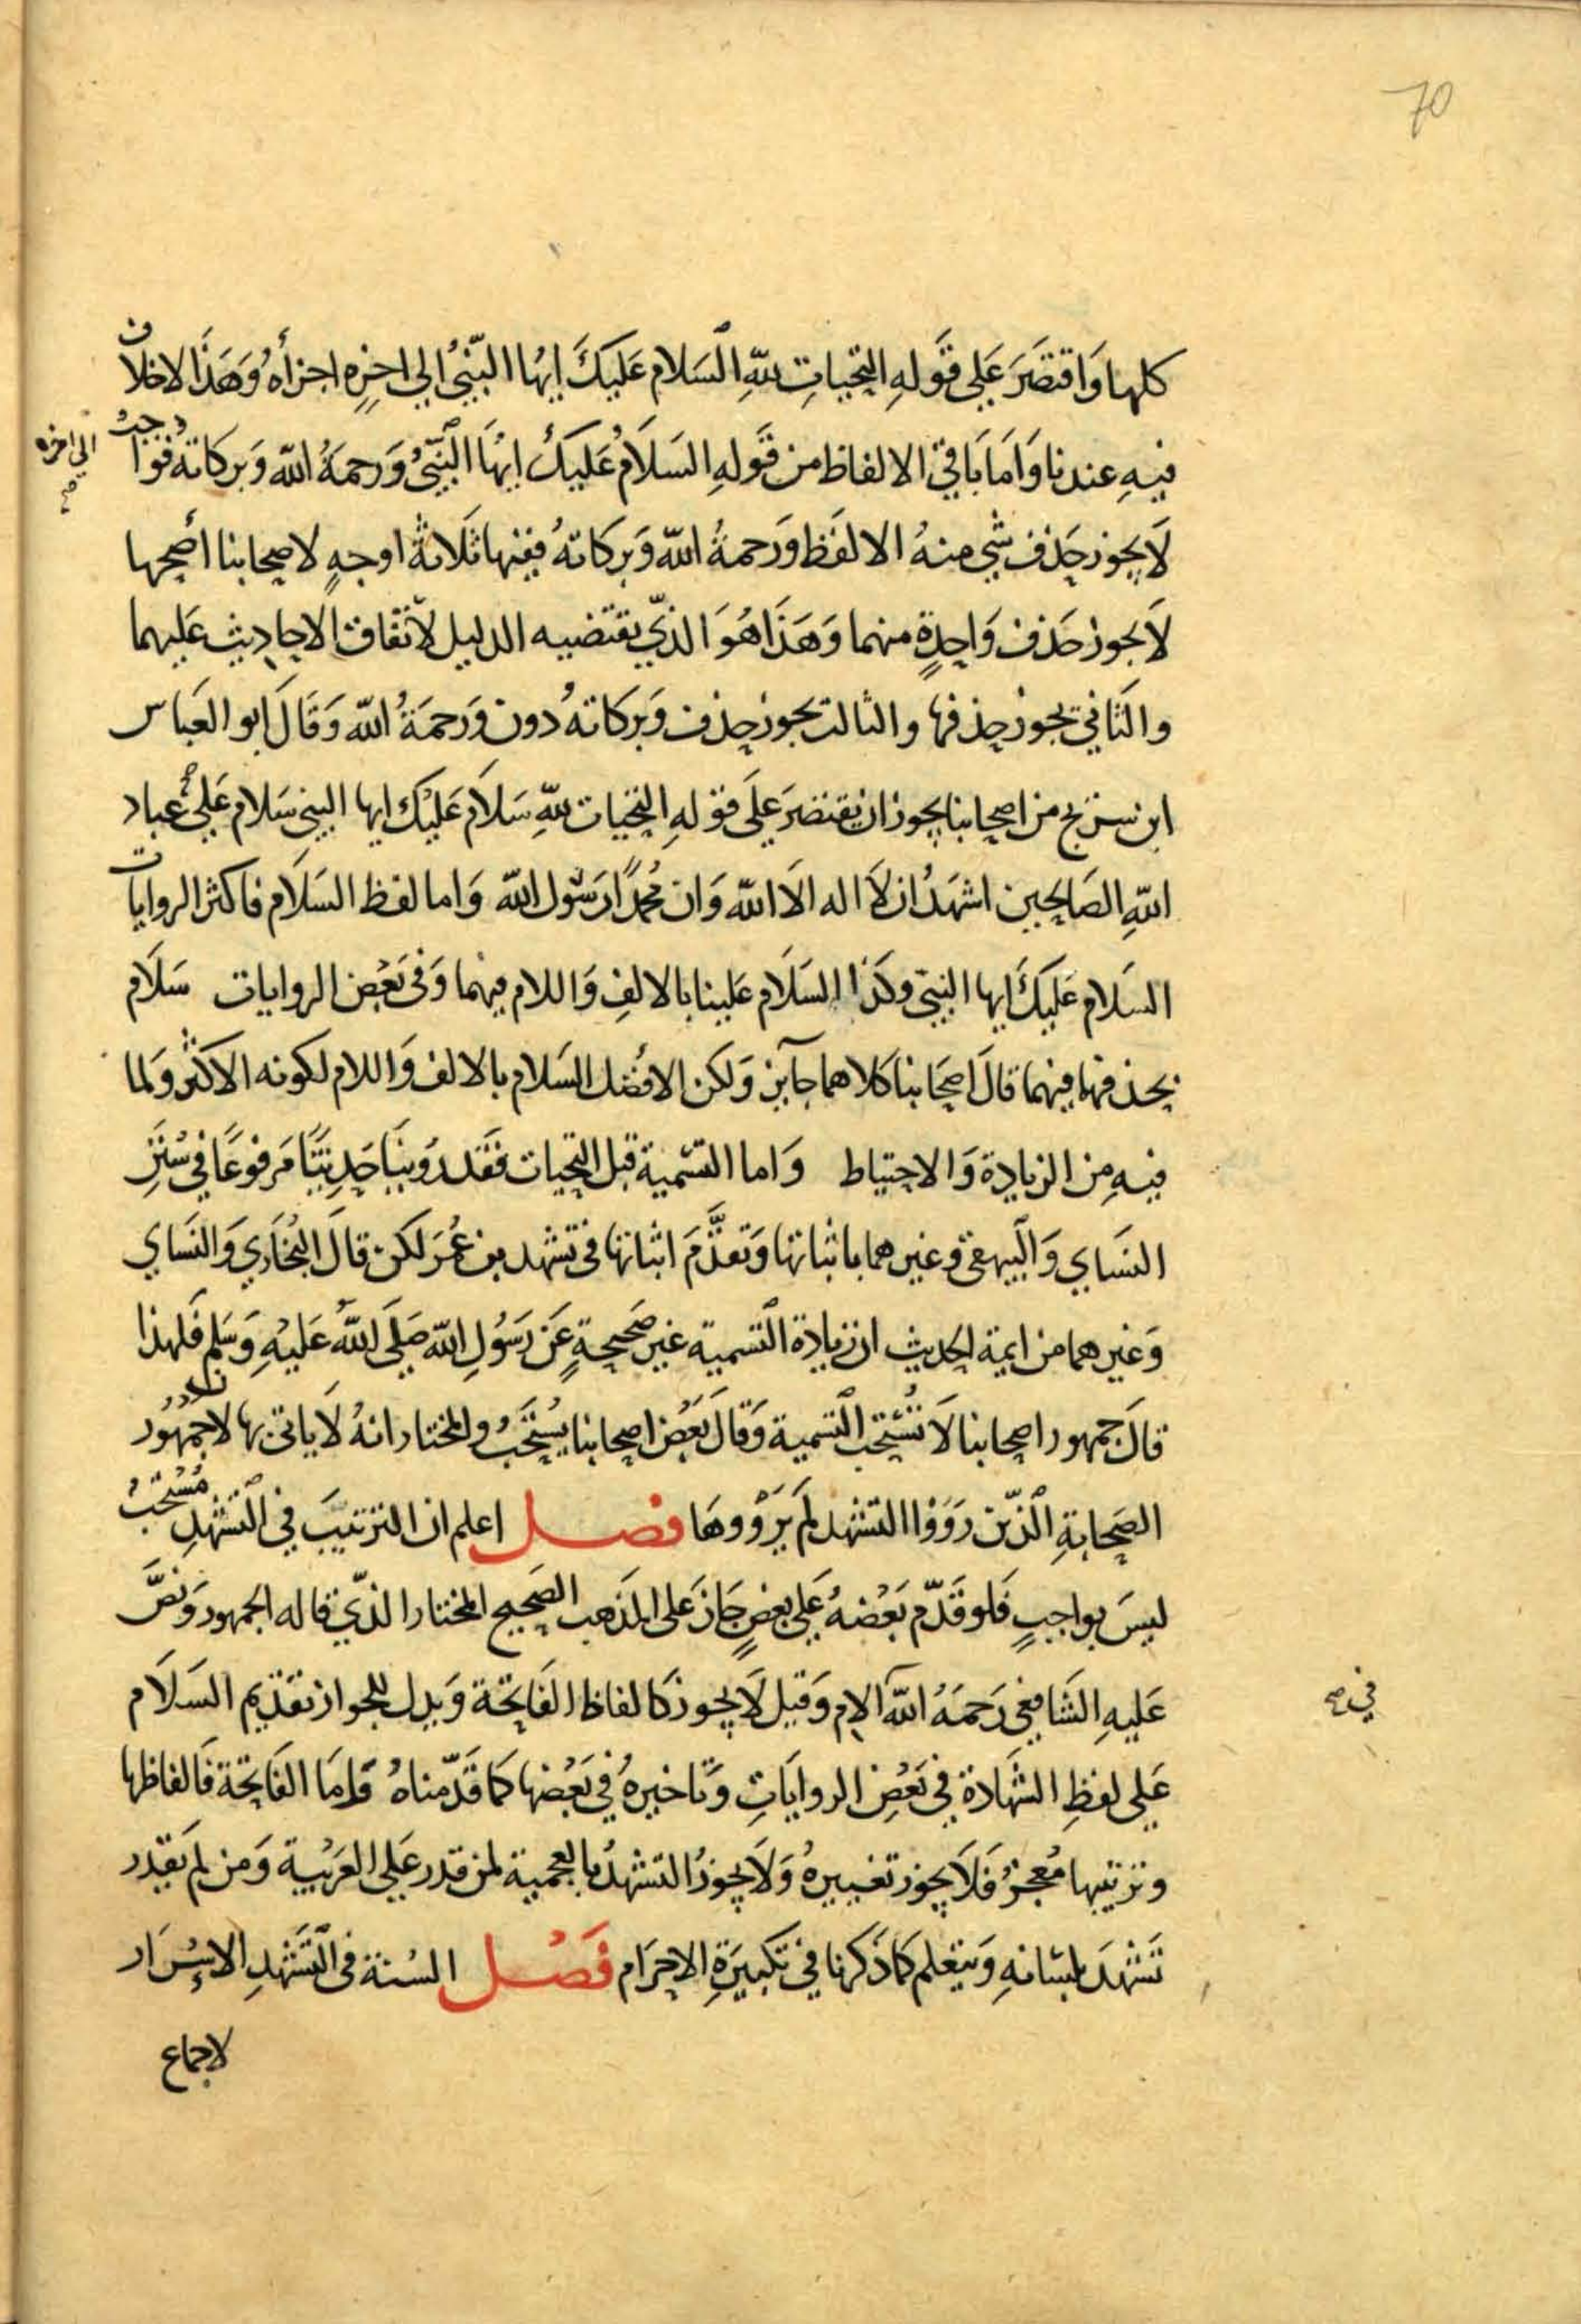 70
كلها وَاقتصَرَ عَلى قَولهِ التحياتِ للهِ السَلام عَليكَ ايها النّبيُ الي اخرِه اجزأه وَهَذا لاخلاف
فيهِ عندنا وَامَا بَاقي الالفاظ من قَولهِ السَلاَمُ عَليكَ ايهَا النَبّيُ وَرحمَةُ الله وَبركاتهُ فواجبُ
الي اخره صح
لاَ يجوز حذف شي منهُ الا لفَظ وَرَحمةُ الله وَبركاتهُ ففيها ثَلاثةُ اوجهٍ لاصحابنا أصحها
لاَ يجوز حَذف وَاحِدةٍ منهما وَهَذَا هُوَ الذّي يقتضيه الدليل لاتفاق الاحاديث عَليهما
والثَاني يجوز حذفها والثالث يجوز حذف وَبركاتهُ دون وَرحمَةُ الله وَقَالَ ابو العَباس
ابن سريج من اصحابنا يجوز ان يقتصَرَ عَلَى قولهِ التحيات للهِ سَلاَم عَليكَ ايها النبي سَلام عَلى عباد
اللهِ الصَالحين اشهَدُ ان لاَ اله الاَ الله وَان مُحمدًا رسَول الله وَاما لفظ السَلاَم فاكثر الروايات
السَلام عَليكَ ايها النبيّ وكَذا السَلاَم عَلينا بالالفِ وَاللام فيهما وَفى بَعْض الروايات سَلاَم
بحذفها فيهما قالَ اصحَابنا كلاهما جَآيز وَلكن الافْضَل السَلام بالالف وَاللام لكونه الاكثْر وَلما
فيهِ مِن الزيادِة وَالاحتياط وَاما التسْمية قبل التحيات فقَد روُينَا حَديثًا مَرفوعًا في سُنَن
النسَاي وَالبَيهقى وغيرهما باثباتها وَتقدَّمَ اثباتها فى تشهد بن عُمَرَ لكن قالَ البُخاري وَالنسَاي
وَغيرهما من ايمة الحديث ان زيادة التَسمية غير صَحيحةٍ عَن رَسُولِ الله صَلى اللهُ عَليْهِ وَسَلم فَلهذا
قالَ جمهور اصحابنا لاَ تُسْتحَب التَسمية وَقالَ بَعْض اصحابنا يُسْتحَبُ والمختار انهُ لاَ ياتى بها لان جُمهُور
الصَحابةِ الذّين رَوَوْا التشهد لمَ يَرْوُوهَا فصل اعلم ان الترتيبَ في التَشهدِ مُسْتحَبٌ
ليسَ بواجبٍ فَلو قَدّم بَعْضهُ عَلى بعضٍ جَازَ عَلى المذَهب الصَحيح المختار الذّي قاله الجمهور وَنصَّ
عَليهِ الشَافعي رَحمَهُ الله الام وَقيل لاَ يجوز كَالفاظ الفَاتحَة وَيدل للجواز تقديم السَلاَم
في صح
عَلي لفظِ الشهَادة في بَعْضِ الروايَاتِ وَتَاخيرهُ في بَعْضها كمَا قَدّمناهُ وَامَا الفَاتحَة فَالفاظها
وترتيبها مُعجزٌ فَلاَ يجوز تغييرهُ وَلاَ يجوزُ التشهدُ بالعجمية لمن قدر عَلى العَربْية وَمن لمَ يقدر
تَشهدَ بلسَانهِ وَيتعَلم كمَا ذَكرنا في تكبيرَةِ الاحرَام فصَل السُنة فى التَشهدِ الاسْرَار
لاجماع